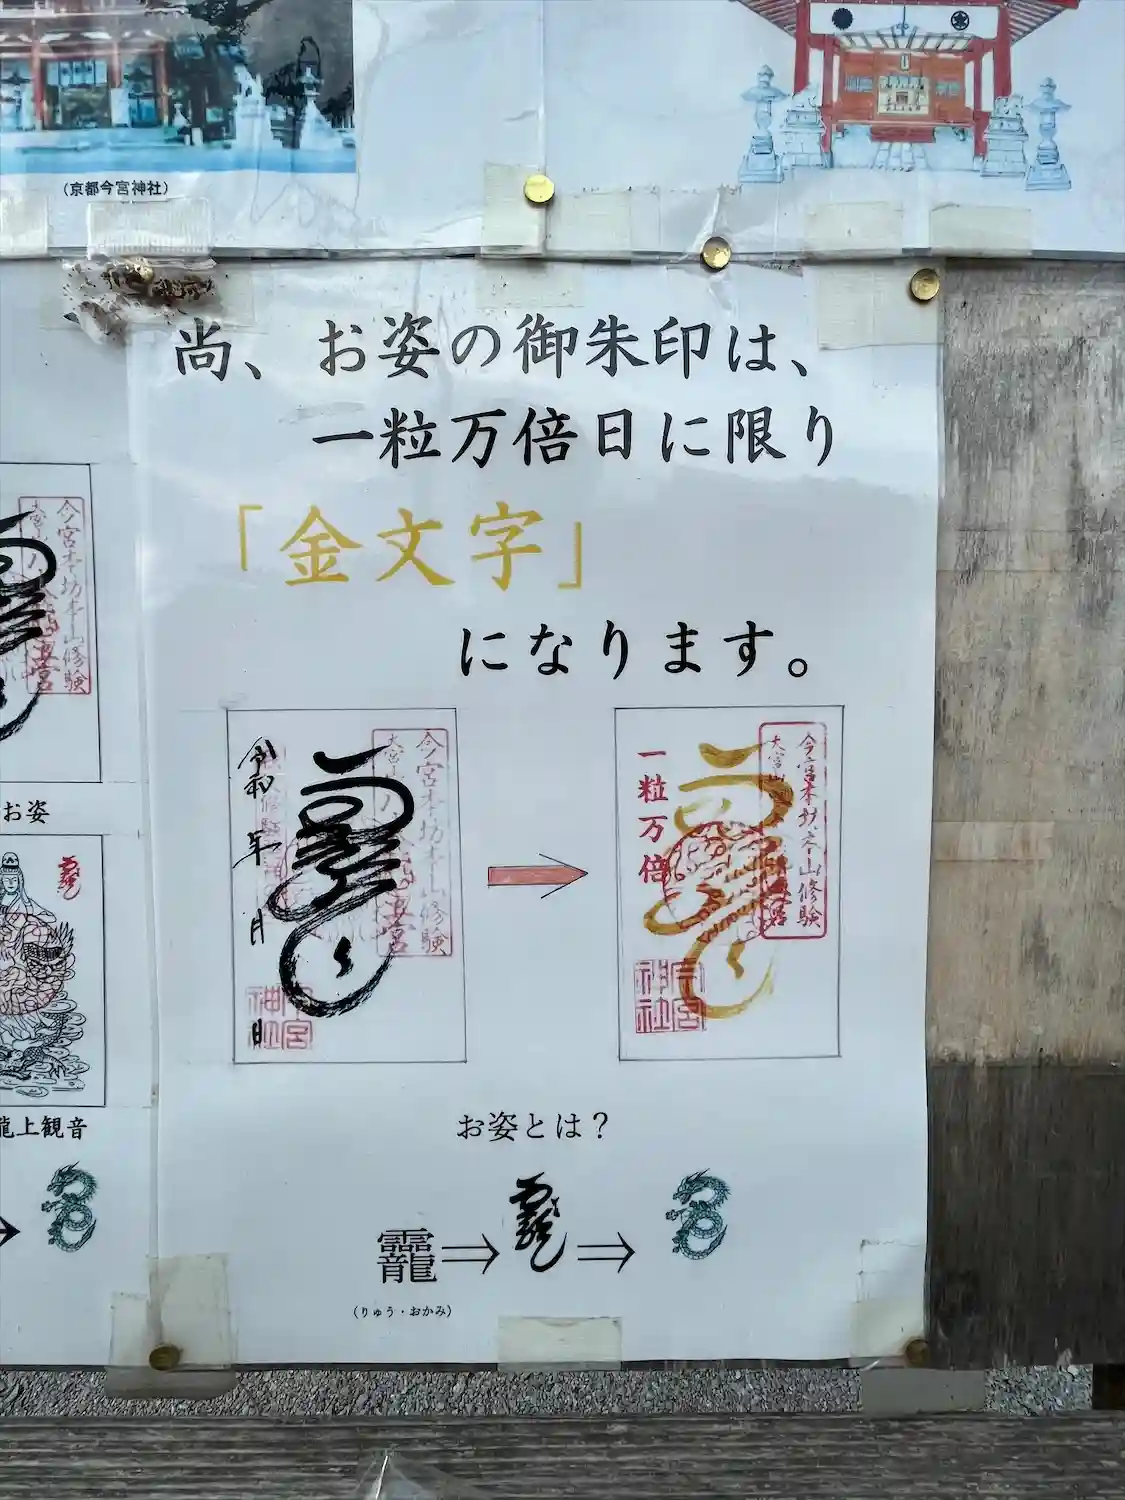 (京都今宮神社)
尚、お姿の御朱印は、
一粒万倍日に限り
「金文字」
になります。
今宮本坊本山修験
お姿
龍上観音
令和 年 月 日
今宮本坊本山修験
今宮神社
一粒万倍
今宮本坊本山修験
今宮神社
お姿とは?
⇒ ⇒
(りゅう・おかみ)